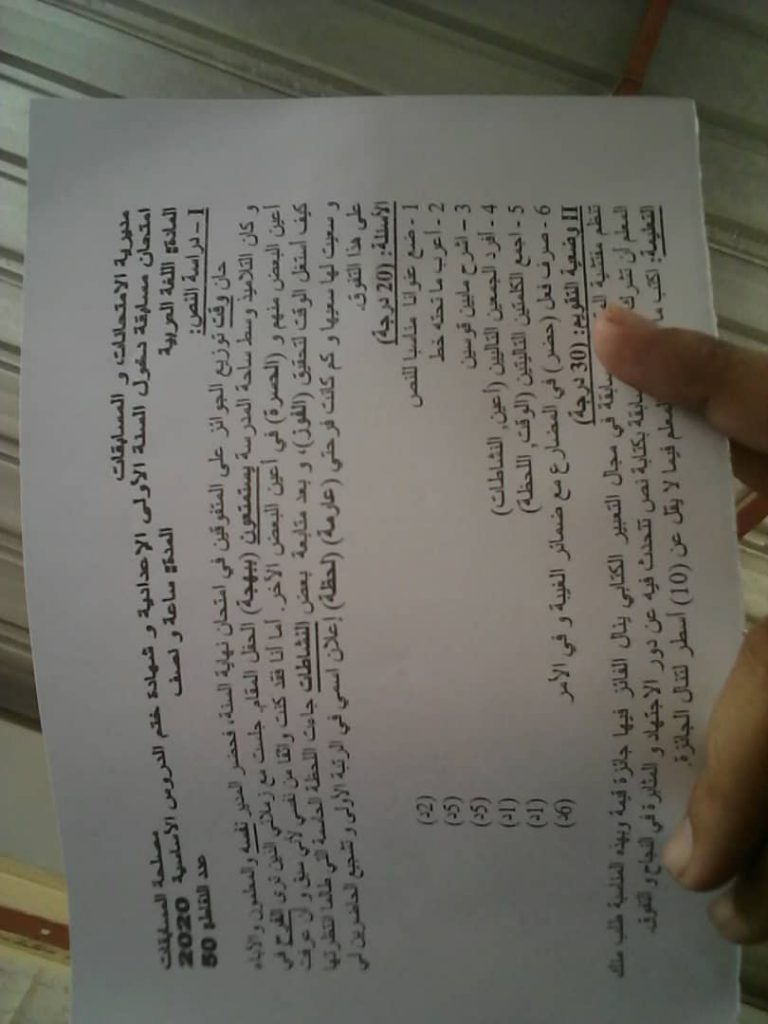 مديرية الامتحانات و المسابقات
مصلحة المسابقات
امتحان مسابقة دخول السنة الأولى الإعدادية و شهادة ختم الدروس الأساسية 2020
المادة: اللغة العربية المدة: ساعة و نصف عدد النقاط: 50
I – دراسة النص:
حان وقت توزيع الجوائز على المتفوقين في امتحان نهاية السنة، فحضر المدير نفسه والمعلمون والآباء
و كان التلاميذ وسط ساحة المدرسة يستمتعون (ببهجة) الحفل المقام. جلست مع زملائي الذين ترى الفرح في
أعين البعض منهم و (الحسرة) في أعين البعض الآخر. أما أنا فقد كنت واثقا من نفسي لأني سبق و أن عرفت
كيف أستغل الوقت لتحقيق (الفوز)، و بعد متابعة بعض النشاطات جاءت اللحظة الحاسمة التي طالما انتظرتها
و سعيت لها سعيها و كم كانت فرحتي (عارمة) (لحظة) إعلان اسمي في الرتبة الأولى و تشجيع الحاضرين لي
على هذا التفوق.
الأسئلة: (20 درجة)
1 - ضع عنوانا مناسبا للنص (2د)
2 - أعرب ما تحته خط (5د)
3 – اشرح مابين قوسين (5د)
4 - أفرد الجمعين التاليين (أعين, النشاطات) (1د)
5 - اجمع الكلمتين التاليتين (الوقت, اللحظة) (1د)
6 - صرف فعل (حضر) في المضارع مع ضمائر الغيبة و في الأمر (6د)
II وضعية التقويم: (30 درجة)
تنظم مفتشية سابقة في مجال التعبير الكتابي ينال الفائز فيها جائزة قيمة وبهذه المناسبة طلب منك
المعلم أن تشرك سابقة بكتابة نص تتحدث فيه عن دور الاجتهاد و المثابرة في النجاح و التفوق.
التعليمة: اكتب ما المعلم فيما لا يقل عن (10) أسطر لتنال الجائزة.